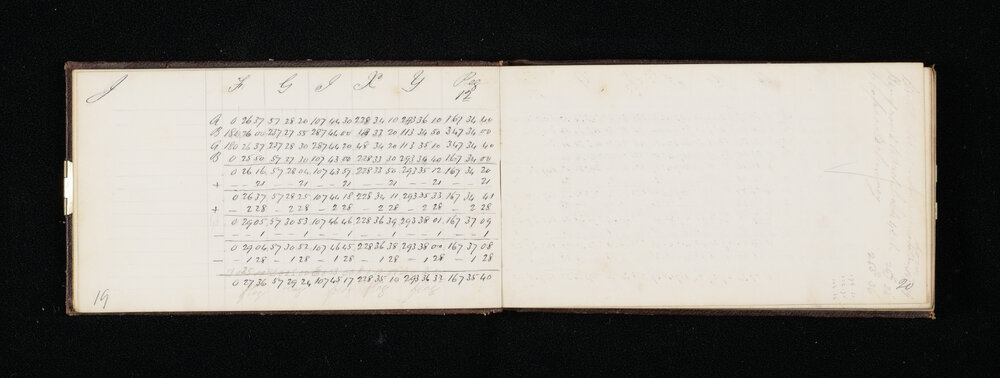 J F G I X Y Peg
12
A 0 26 37 57 28 20 107 44 30 228 34 10 293 36 10 167 34 40
B 180 26 00 237 27 55 287 44 00 48 33 20 113 34 50 347 34 00
A 180 26 37 237 28 30 287 44 20 48 34 20 113 35 10 347 34 40
B 0 25 50 57 27 30 107 43 00 228 33 30 293 34 40 167 34 00
0 26 16 57 28 04 107 43 57 228 33 50 293 35 12 167 34 20
+ - - 21 - - 21 - - 21 - - 21 - - 21 - - 21
0 26 37 57 28 25 107 44 18 228 34 11 293 35 33 167 34 41
+ - 2 28 - 2 28 - 2 28 - 2 28 - 2 28 - 2 28
0 29 05 57 30 53 107 46 46 228 36 39 293 38 01 167 37 09
- - - 1 - - 1 - - 1 - - 1 - - 1 - - 1
0 29 04 57 30 52 107 46 45 228 36 38 293 38 00 167 37 08
- - 1 28 - 1 28 - 1 28 - 1 28 - 1 28 - 1 28
0 27 36 57 29 24 107 45 17 228 35 10 293 36 32 167 35 40
19
20